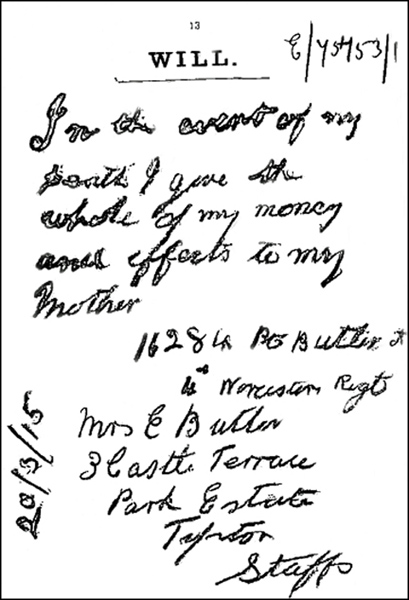 13
WILL.
In the event of my
Death I give the
whole of my money
and effects to my
Mother
Butler
4th Worcesters Regt
Mrs E Butler
3 Castle Terrace
Park Estate
Tipton
Staffs